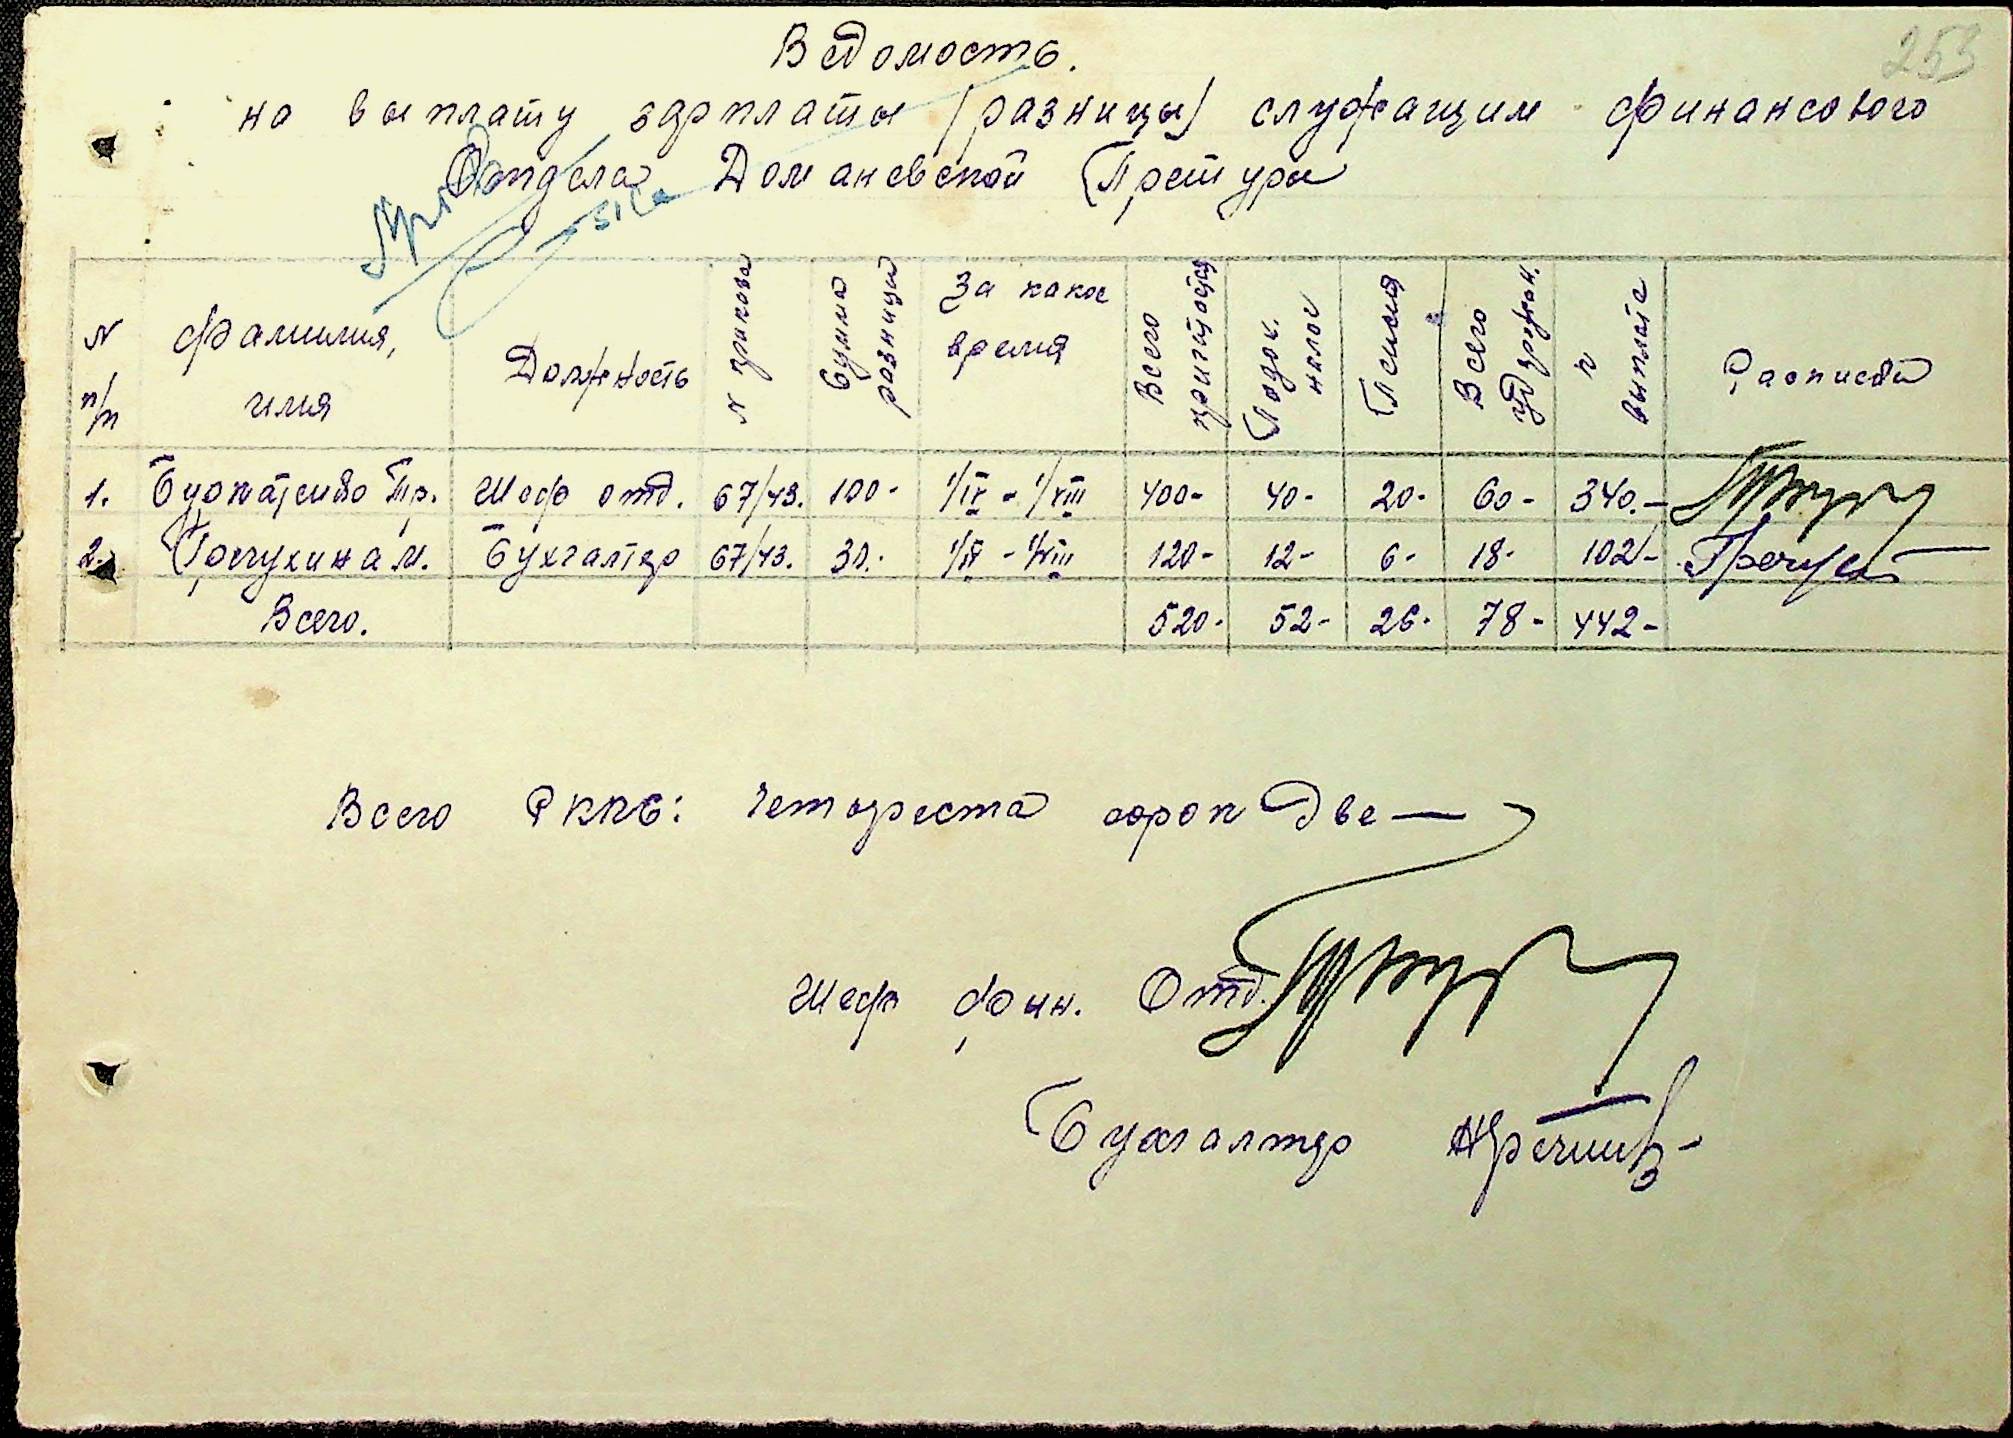 253
Ведомость.
на выплату зарплаты (разницы) служащим финансового
Отдела Доманевской Претуры
N п/п Фамилия, имя Должность N приказа Сумма разницы За какое время Всего причитается Подох. налог Пенсия Всего удержан. к выплате Расписка
1. Гр. Шеф отд. 67/43. 100- 1/IV - 1/VIII 400- 40- 20- 60- 340.-
2. Гречухина М. Бухгалтер 67/43. 30.- 1/IV - 1/VIII 120- 12- 6- 18- 102-
Всего. 520- 52- 26- 78- 442-
Всего РККС: Четыреста сорок две —
Шеф фин. Отд.
Бухгалтер